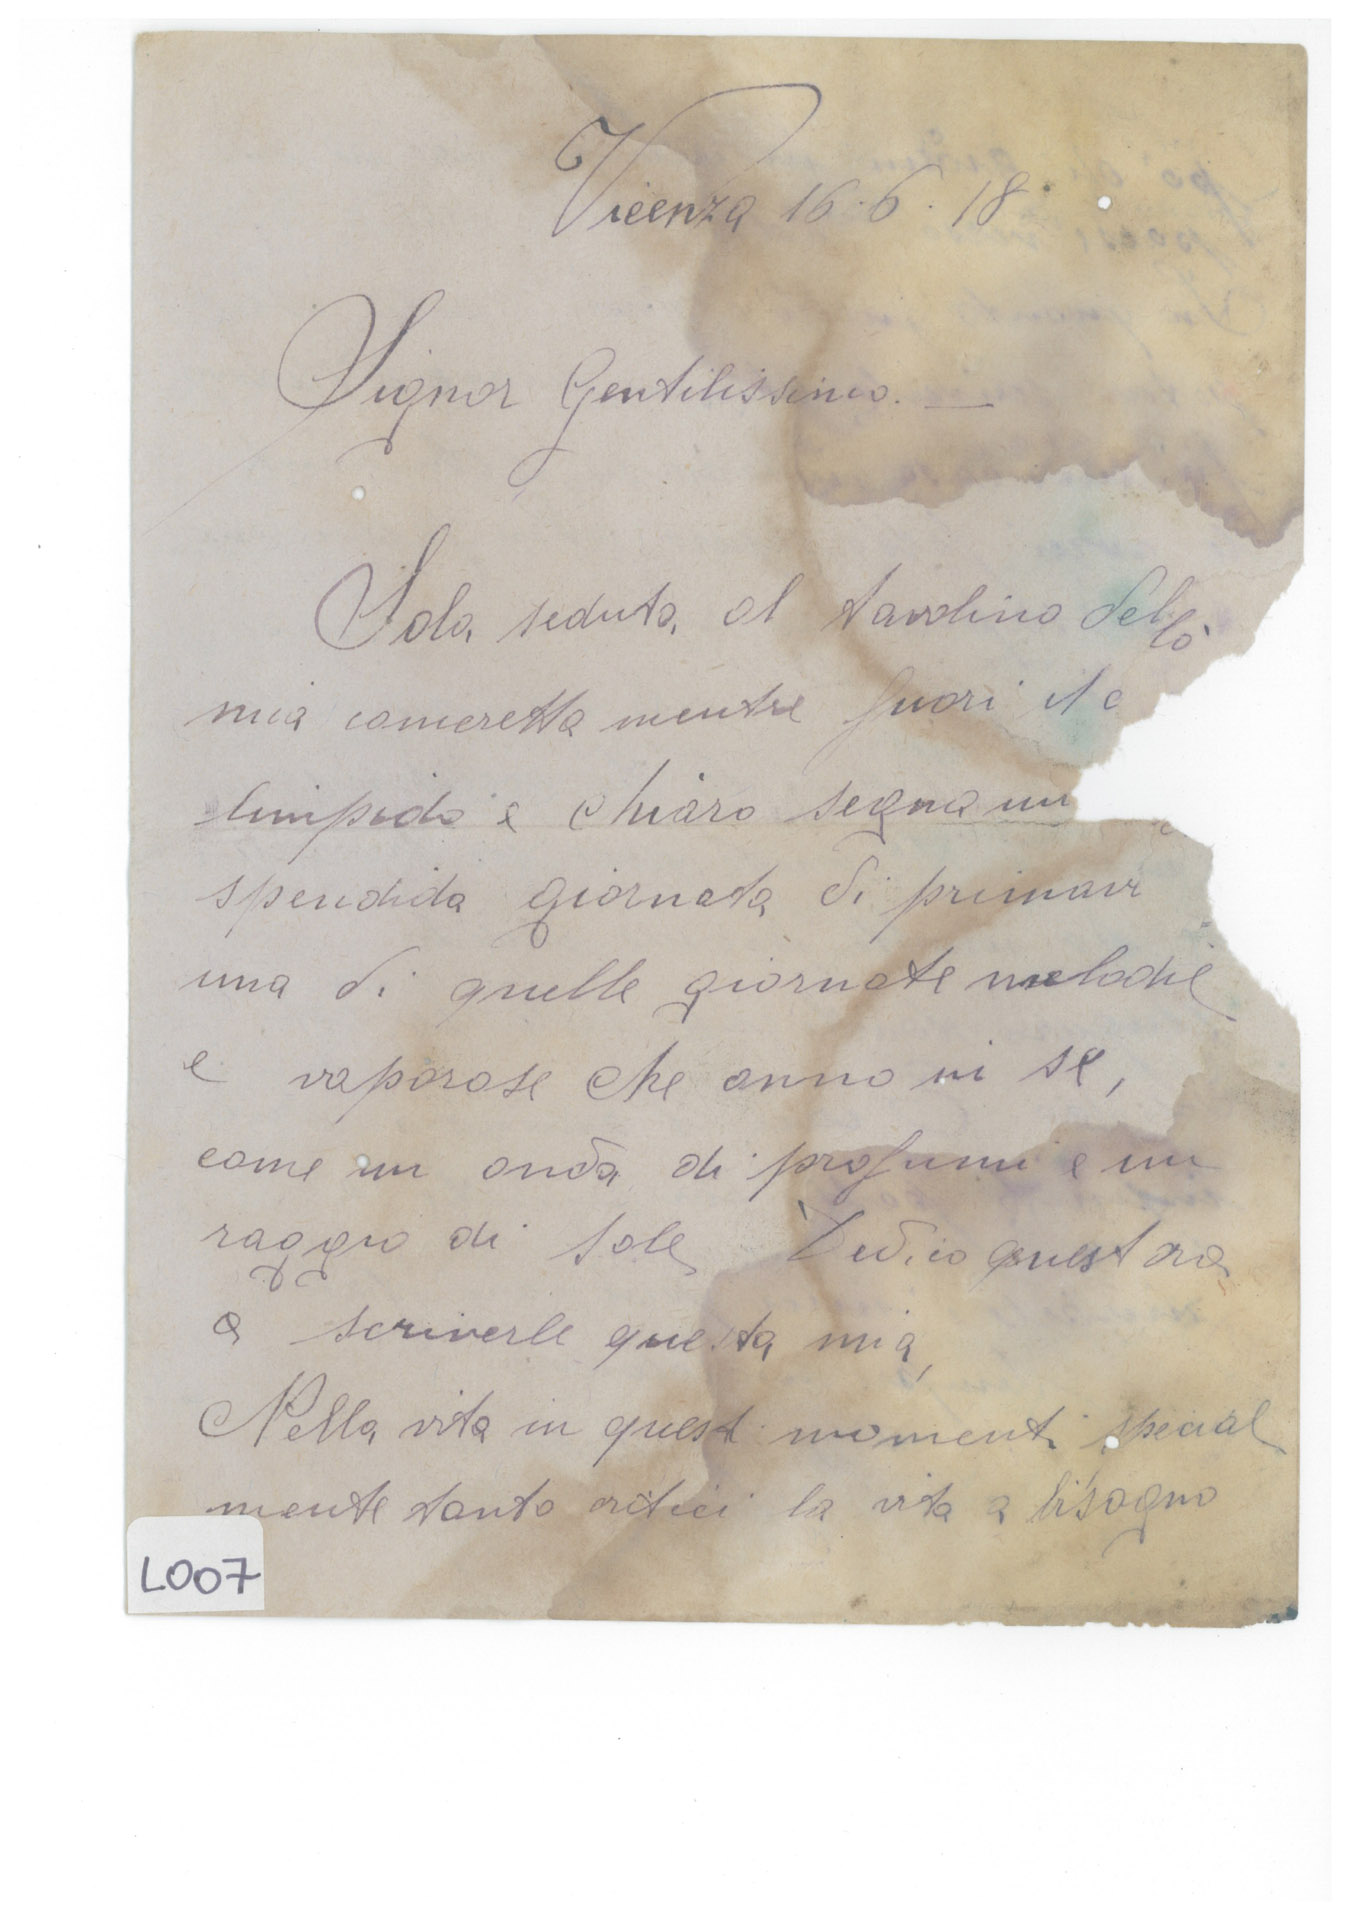 Vicenza 16.6.18
Signor Gentilissimo. —
Sola seduta, al tavolino della
mia cameretta mentre fuori il c
limpido e chiaro segna un
spendida giornata di primav
una di quelle giornate melodie
e vaporose che anno in se,
come un onda di profumi e un
raggio di sole, Dedico quest ora
a scriverle questa mia,
Nella vita in questi momenti special
mente tanto critici la vita a bisogno
L007